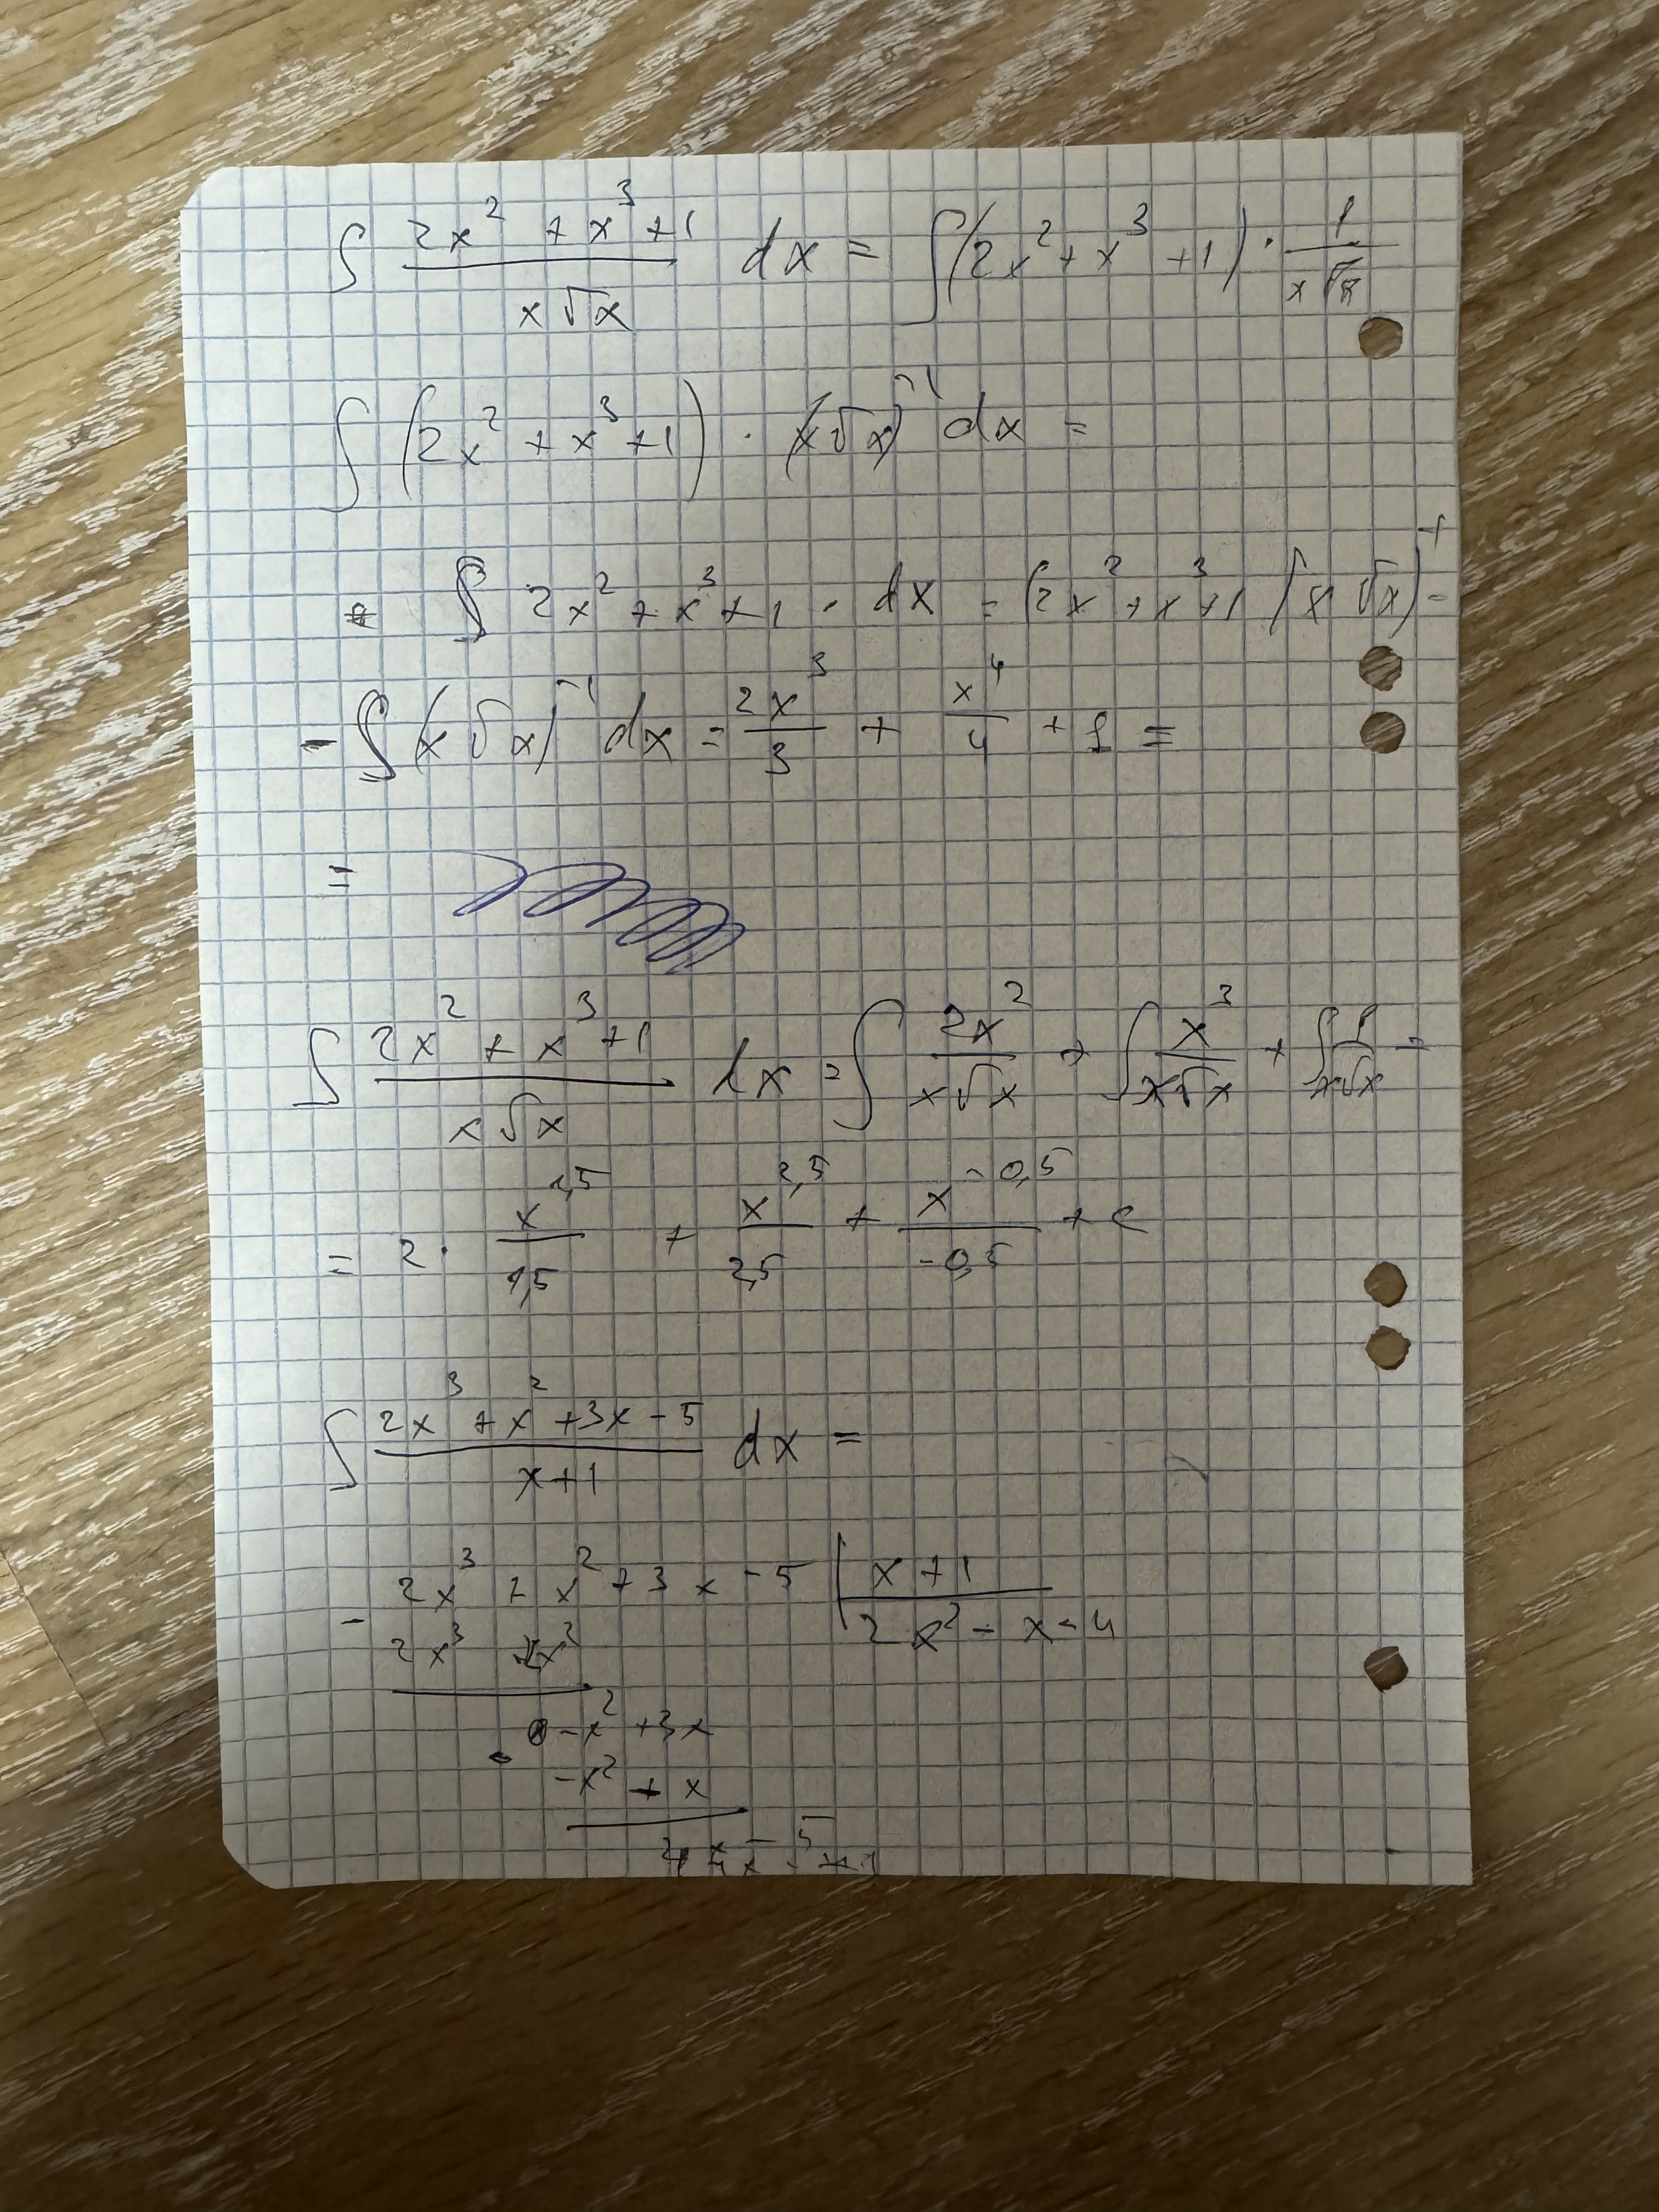 ∫ (2x² + x³ + 1)/(x√x) dx = ∫(2x² + x³ + 1) · 1/(x√x)
∫ (2x² + x³ + 1) · (x√x)⁻¹ dx =
= ∫ 2x² + x³ + 1 · dx = (2x² + x³ + 1)(x√x) -
- ∫ (x√x)⁻¹ dx = 2x³/3 + x⁴/4 + 1 =
=
∫ (2x² + x³ + 1)/(x√x) dx = ∫ 2x²/(x√x) + ∫ x³/(x√x) + ∫ 1/(x√x) =
= 2 · x^1,5/1,5 + x^2,5/2,5 + x^-0,5/-0,5 + c
∫ (2x³ + x² + 3x - 5)/(x+1) dx =
- 2x³ + x² + 3x - 5 | x + 1
2x³ 2x² 2x² - x - 4
-x² + 3x
-x² + x